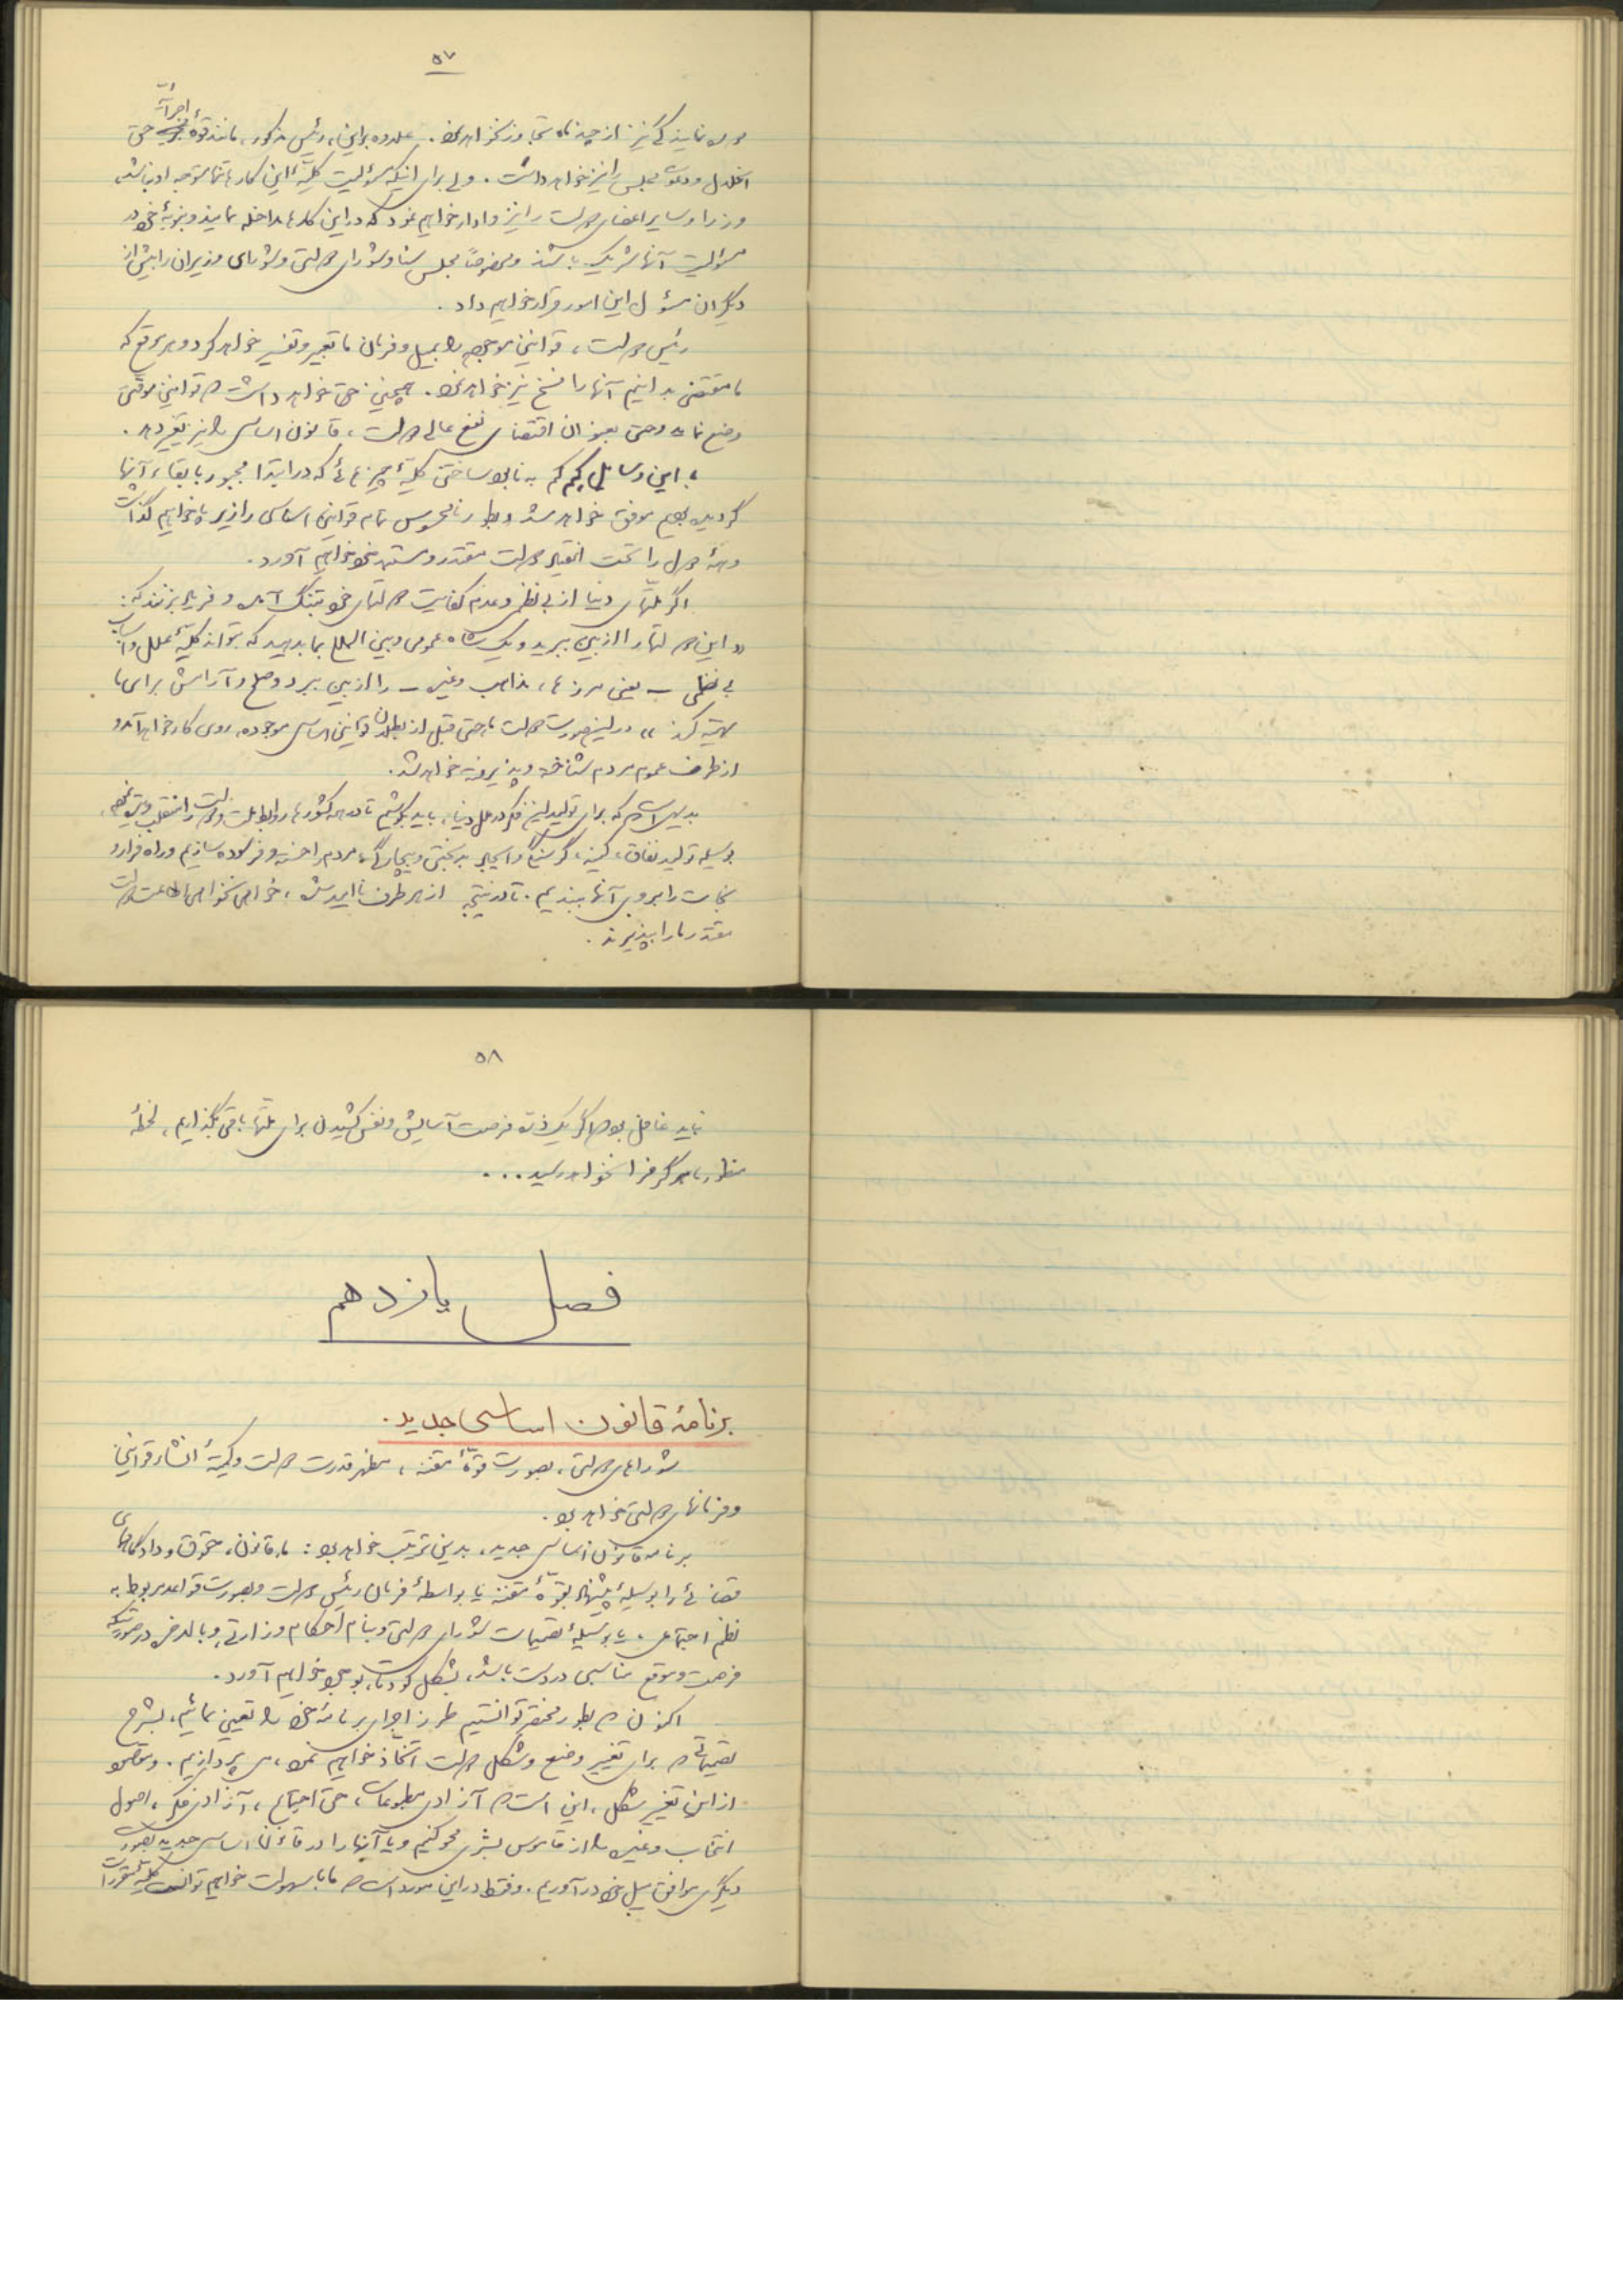 ۵۷
دوره نمایندگی نیز از چند ماه تجاوز نخواهد نمود. علاوه بر این، رئیس مذکور، مانند قوهٔ اجرائیه حق
انحلال و دعوت مجلس را نیز خواهد داشت. ولی برای اینکه مسؤلیت کلیهٔ این کارها تنها متوجه او نباشد،
وزرا و سایر اعضای دولت را نیز وادار خواهیم نمود که در این کارها مداخله نمایند و بنوبهٔ خود در
مسؤلیت آنها شریک باشند و مخصوصاً مجلس سنا و شورای دولتی و شورای وزیران را بیش از
دیگران مسؤل این امور قرار خواهیم داد.
رئیس دولت، قوانین موجود را بمیل و فرمان ما تعبیر و تفسیر خواهد کرد و هر موقع که
ما مقتضی بدانیم آنها را فسخ نیز خواهد نمود. همچنین حق خواهد داشت که قوانین موقتی
وضع نماید و حتی بعنوان اقتضای نفع عالی دولت، قانون اساسی را نیز تغییر دهد.
با این وسایل کم کم به نابود ساختن کلیهٔ چیزهائی که در ابتدا مجبور بابقاء آنها
گردیده بودیم موفق خواهیم شد و بطور نامحسوس تمام قوانین اساسی را زیر پا خواهیم گذاشت
و همهٔ دول را تحت انقیاد دولت مقتدر و مستبد خود خواهیم آورد.
اگر ملتهای دنیا از بی نظمی و عدم کفایت دولتهای خود بتنگ آمده و فریاد بزنند که:
«این دولتها را از بین ببرید و یک شاه عمومی و بین المللی بما بدهید که بتواند کلیهٔ علل و اسباب
بی نظمی – یعنی مرزها، مذاهب و غیره – را از بین ببرد و صلح و آرامش برای ما
تهیه کند» در این صورت دولت ما حتی قبل از بطلان قوانین اساسی موجوده، روی کار خواهد آمد و
از طرف عموم مردم شناخته و پذیرفته خواهد شد.
بدیهی است که برای تولید این فکر در ملل دنیا، باید بکوشیم تا در همه کشورها روابط ملت و دولت را منقلب و تیره نموده،
بوسیله تولید نفاق، کینه، گرسنگی و ایجاد بدبختی و بیچارگی، مردم را خسته و فرسوده سازیم و راه فرار و
نجات را بروی آنها ببندیم. تا در نتیجه از هر طرف ناامید شده، خواهی نخواهی اطاعت دولت
مقتدر ما را بپذیرند.
۵۸
نباید غافل بود که اگر یک ذره فرصت آسایش و نفس کشیدن برای ملتها باقی بگذاریم، لحظهٔ
منظور ما هرگز فرا نخواهد رسید...
فصل یازدهم
برنامهٔ قانون اساسی جدید.
شورای دولتی، بصورت قوهٔ مقننه، مظهر قدرت دولت و کمیتهٔ انشاء قوانین
و فرمانهای دولتی خواهد بود.
برنامه قانون اساسی جدید، بدین ترتیب خواهد بود: ما، قانون، حقوق و دادگاههای
قضائی را بوسیلهٔ پیشنهاد بقوهٔ مقننه یا بواسطهٔ فرمان رئیس دولت و بصورت قواعد مربوط به
نظم اجتماعی، یا بوسیلهٔ تصمیمات شورای دولتی و بنام احکام وزارتی، و بالفرض در صورتیکه
فرصت و موقع مناسبی در دست باشد، بشکل کودتا، بوجود خواهیم آورد.
اکنون که بطور مختصر توانستیم طرز اجرای برنامهٔ خود را تعیین نمائیم، بشرح
تصمیماتی که برای تغییر وضع و شکل دولت اتخاذ خواهیم نمود، می پردازیم. و مقصود
از این تغییر شکل، این است که آزادی مطبوعات، حق اجتماع، آزادی فکر، اصول
انتخاب و غیره را از قاموس بشری محو کنیم و یا آنها را در قانون اساسی جدید بصورت
دیگری موافق میل خود در آوریم. و فقط در این مورد است که ما با سهولت خواهیم توانست کلیهٔ مقررات